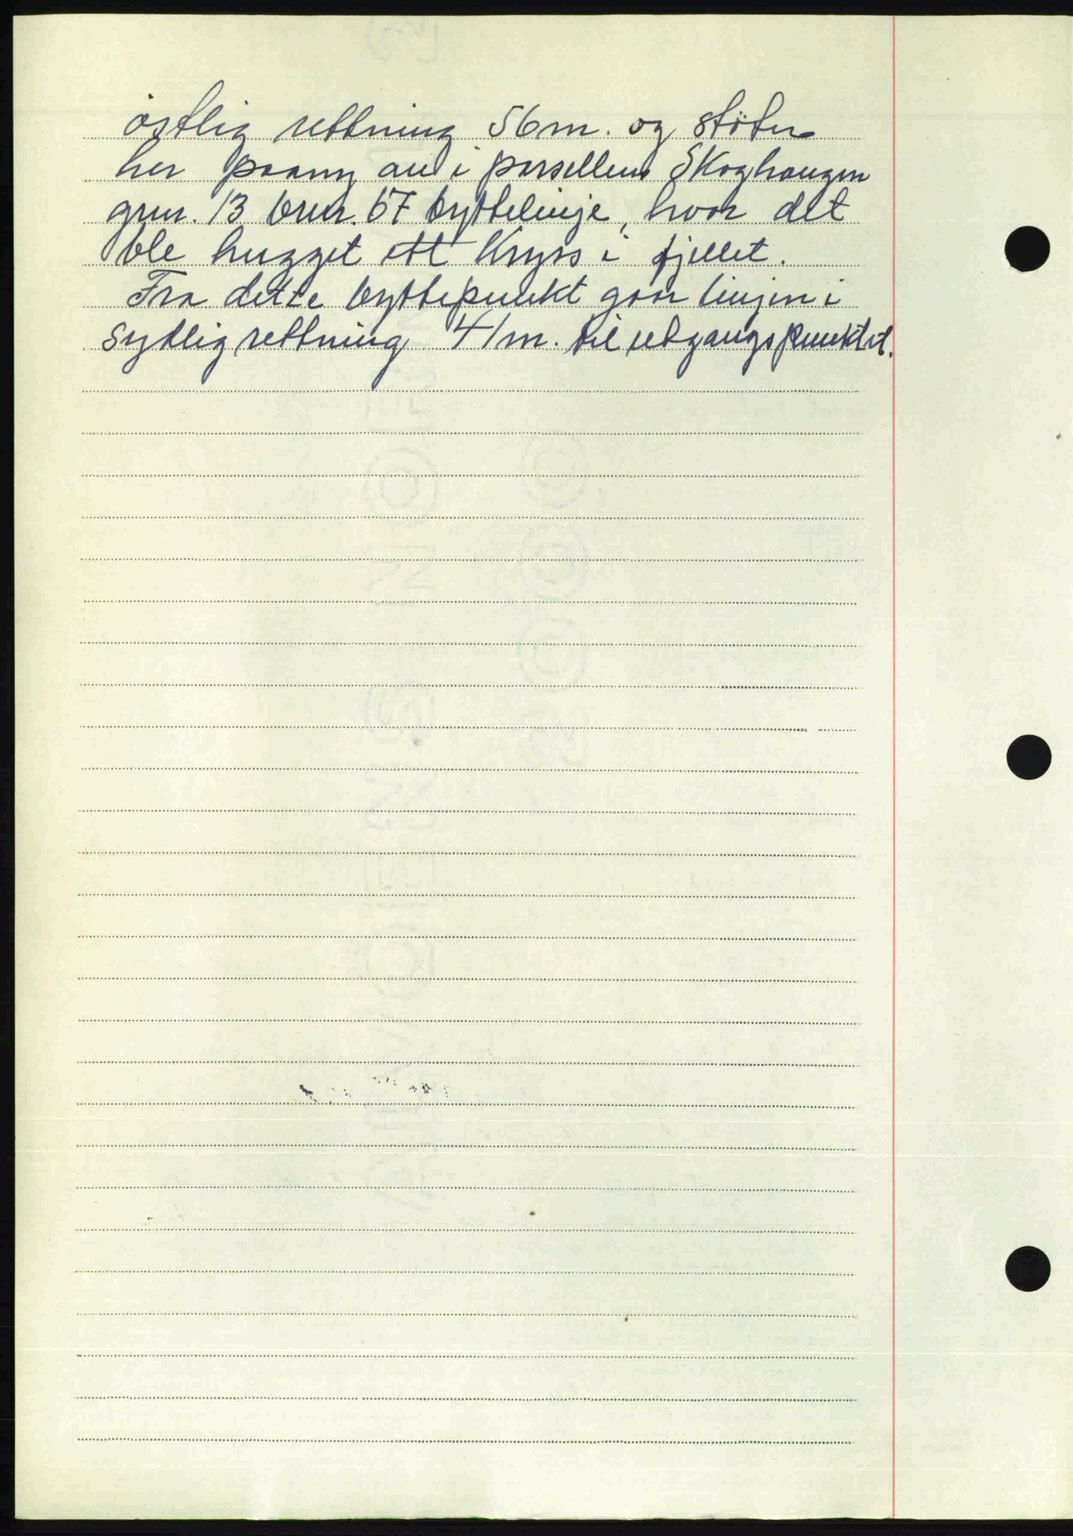 östlig rettning 56 m. og støter
her paany an i parsellens Skoghaugen
grnr. 13 brnr. 67 byttelinje, hvor det
ble hugget ett Kryss i fjellet.
Fra dette byttepunkt gaar linjen i
sydlig rettning 41 m. til utgangspunktet.